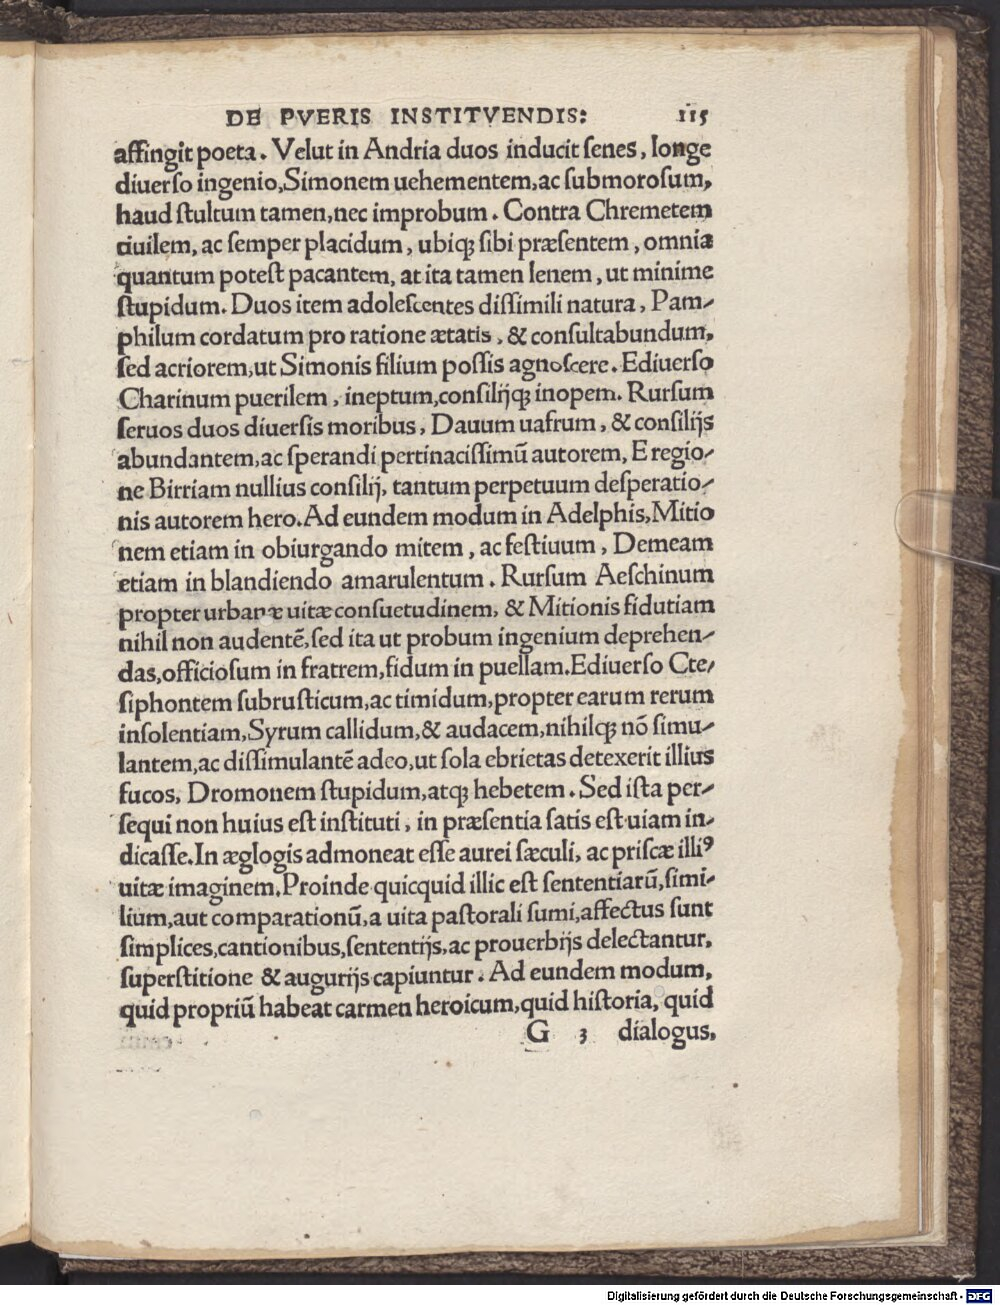 DE PVERIS INSTITVENDIS: 115
affingit poeta. Velut in Andria duos inducit ſenes, longe
diuerſo ingenio, Simonem uehementem, ac ſubmoroſum,
haud ſtultum tamen, nec improbum. Contra Chremetem
ciuilem, ac ſemper placidum, ubiqꝫ ſibi præſentem, omnia
quantum poteſt pacantem, at ita tamen lenem, ut minime
ſtupidum. Duos item adoleſcentes diſſimili natura, Pam-
philum cordatum pro ratione ætatis, & conſultabundum,
ſed acriorem, ut Simonis filium poſſis agnoſcere. Ediuerſo
Charinum puerilem, ineptum, conſilijqꝫ inopem. Rurſum
ſeruos duos diuerſis moribus, Dauum uafrum, & conſilijs
abundantem, ac ſperandi pertinaciſſimū autorem, E regio-
ne Birriam nullius conſilij, tantum perpetuum deſperatio-
nis autorem hero. Ad eundem modum in Adelphis, Mitio
nem etiam in obiurgando mitem, ac feſtiuum, Demeam
etiam in blandiendo amarulentum. Rurſum Aeſchinum
propter urbanæ uitæ conſuetudinem, & Mitionis fidutiam
nihil non audentē, ſed ita ut probum ingenium deprehen-
das, officioſum in fratrem, fidum in puellam. Ediuerſo Cte-
ſiphontem ſubruſticum, ac timidum, propter earum rerum
inſolentiam, Syrum callidum, & audacem, nihilqꝫ nō ſimu-
lantem, ac diſſimulantē adeo, ut ſola ebrietas detexerit illius
fucos, Dromonem ſtupidum, atqꝫ hebetem. Sed iſta per-
ſequi non huius eſt inſtituti, in præſentia ſatis eſt uiam in-
dicaſſe. In æglogis admoneat eſſe aurei ſæculi, ac priſcæ illiꝰ
uitæ imaginem. Proinde quicquid illic eſt ſententiarū, ſimi-
lium, aut comparationū, a uita paſtorali ſumi, affectus ſunt
ſimplices, cantionibus, ſententijs, ac prouerbijs delectantur,
ſuperſtitione & augurijs capiuntur. Ad eundem modum,
quid propriū habeat carmen heroicum, quid hiſtoria, quid
G 3 dialogus,
Digitalisierung gefördert durch die Deutsche Forschungsgemeinschaft - DFG